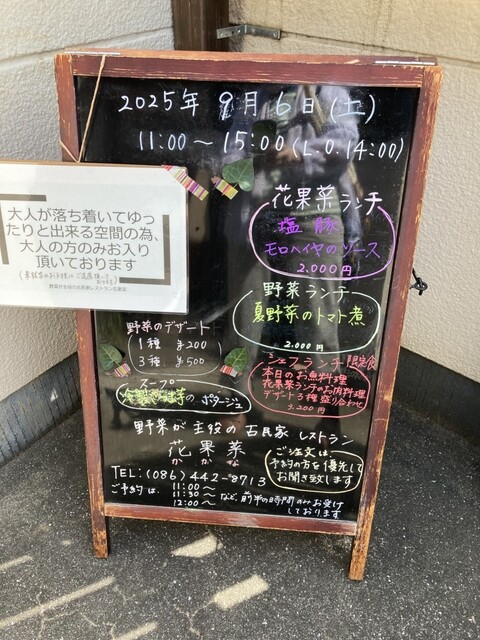 2025年 9月 6日 (土)
11:00～15:00 (L.O.14:00)
大人が落ち着いてゆっ
たりと出来る空間の為、
大人の方のみお入り
頂いております
野菜が主役の古民家レストラン花果菜
花果菜ランチ
塩豚
モロヘイヤのソース
2.000円
野菜ランチ
夏野菜のトマト煮
2.000円
野菜のデザート
1種 ¥200
3種 ¥500
シェフランチ 限定食
本日のお魚料理
花果菜ランチのお肉料理
デザート3種盛り合わせ
3.200円
スープ
冷製さつま芋のポタージュ
野菜が主役の古民家レストラン
花果菜
かかな
ご注文は
予約の方を優先して
お聞き致します
TEL:(086)442-8713
ご予約は、
11:00～
11:30～
12:00～
など、前半の時間のみお受け
しております